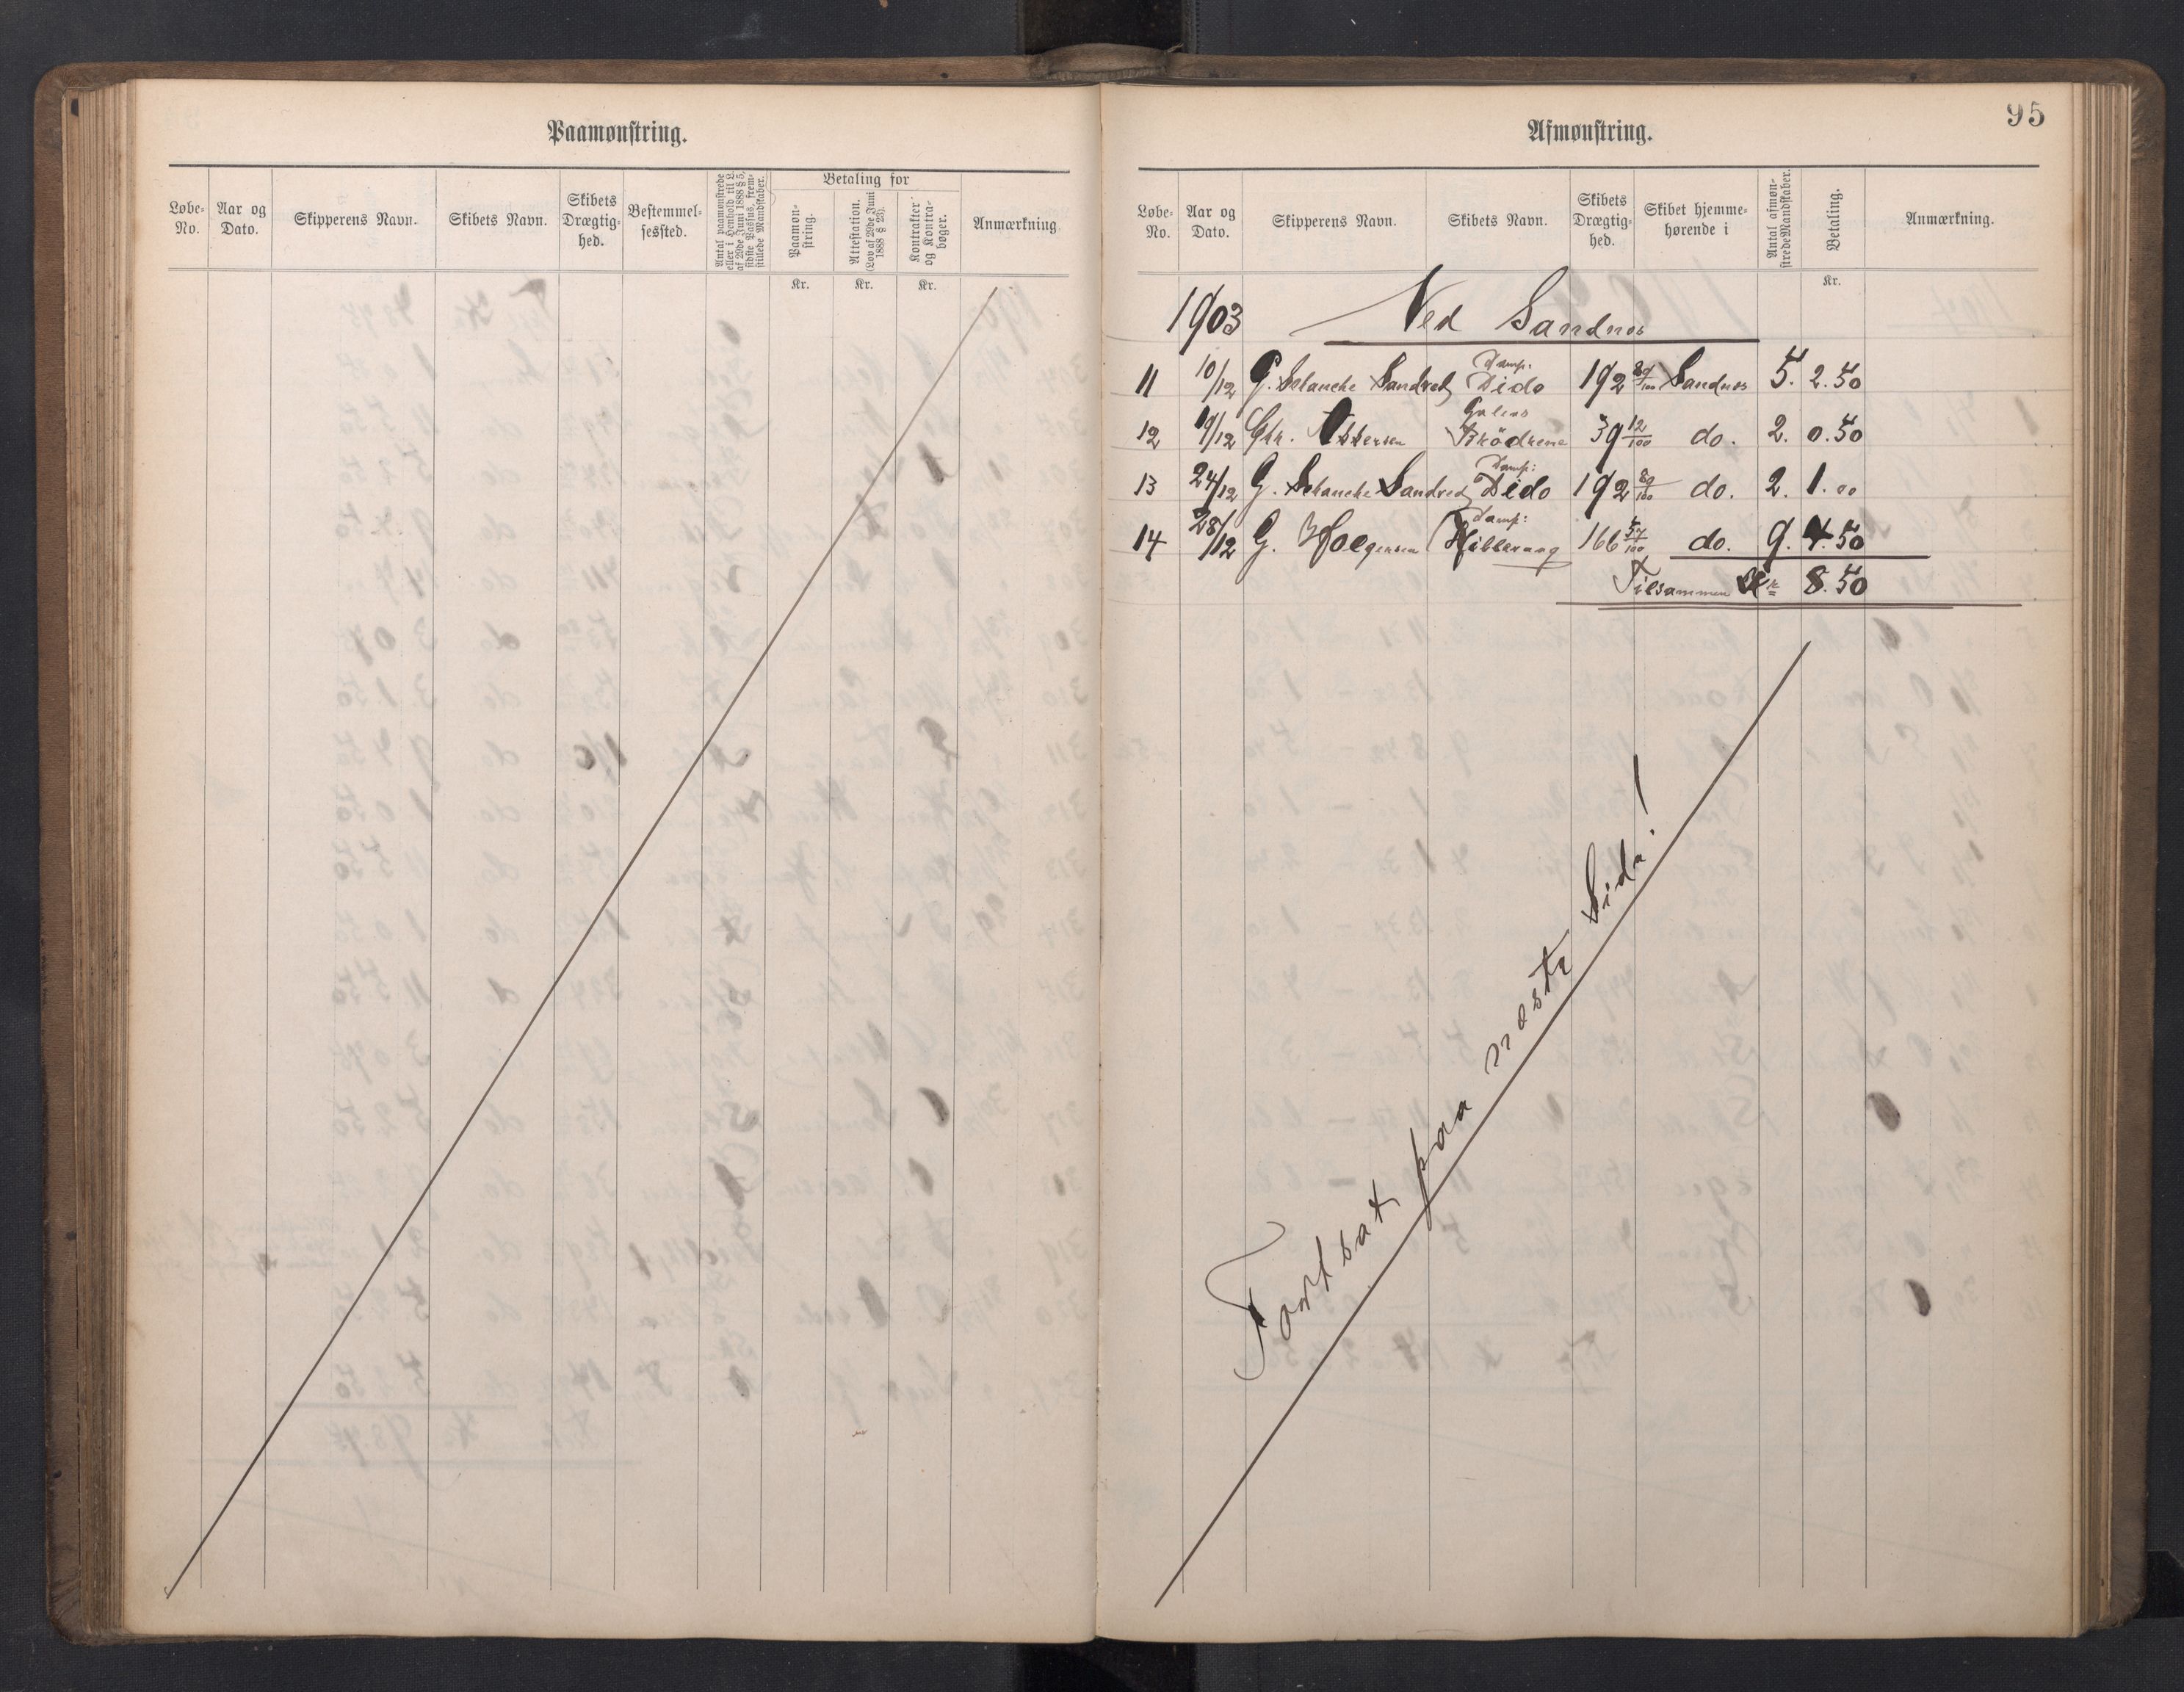 Paamønstring.
Løbe-No.
Aar og Dato.
Skipperens Navn.
Skibets Navn.
Skibets Drægtig-hed.
Bestemmel-sessted.
Antal paamønstrede eller i Henhold til L. af 29de Juni 1888 § 5, sidste Passus, frem-stillede Mandskaber.
Betaling for
Paamøn-string.
Attestation. (Lov af 29de Juni 1888 § 23).
Kontrakter og Kontra-bøger.
Anmærkning.
Kr. Kr. Kr.
95
Afmønstring.
Løbe-No.
Aar og Dato.
Skipperens Navn.
Skibets Navn.
Skibets Drægtig-hed.
Skibet hjemme-hørende i
Antal afmøn-strede Mandskaber.
Betaling.
Anmærkning.
Kr.
1903 Ved Sandnes
11 10/12 G. Schanche Sandved Damp. Dido 192 80/100 Sandnes 5. 2.50
12 19/12 Chr. Galeas Brödrene 39 12/100 do. 2. 0.50
13 24/12 G. Schanche Sandved Damp: Dido 192 80/100 do. 2. 1.00
14 28/12 G. Damp: 166 57/100 do. 9. 4.50
Tilsammen Kr 8.50
Fortsat paa næste Side!